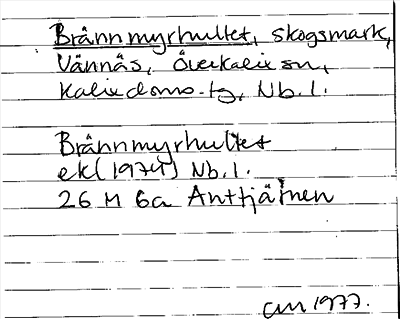 Brännmyrhultet, skogsmark,
Vännäs, Överkalix sn,
Kalix doms.tg, Nb.l.
Brännmyrhultet
ek (1974) Nb.l.
26 M 6a Anttjärnen
am 1977.